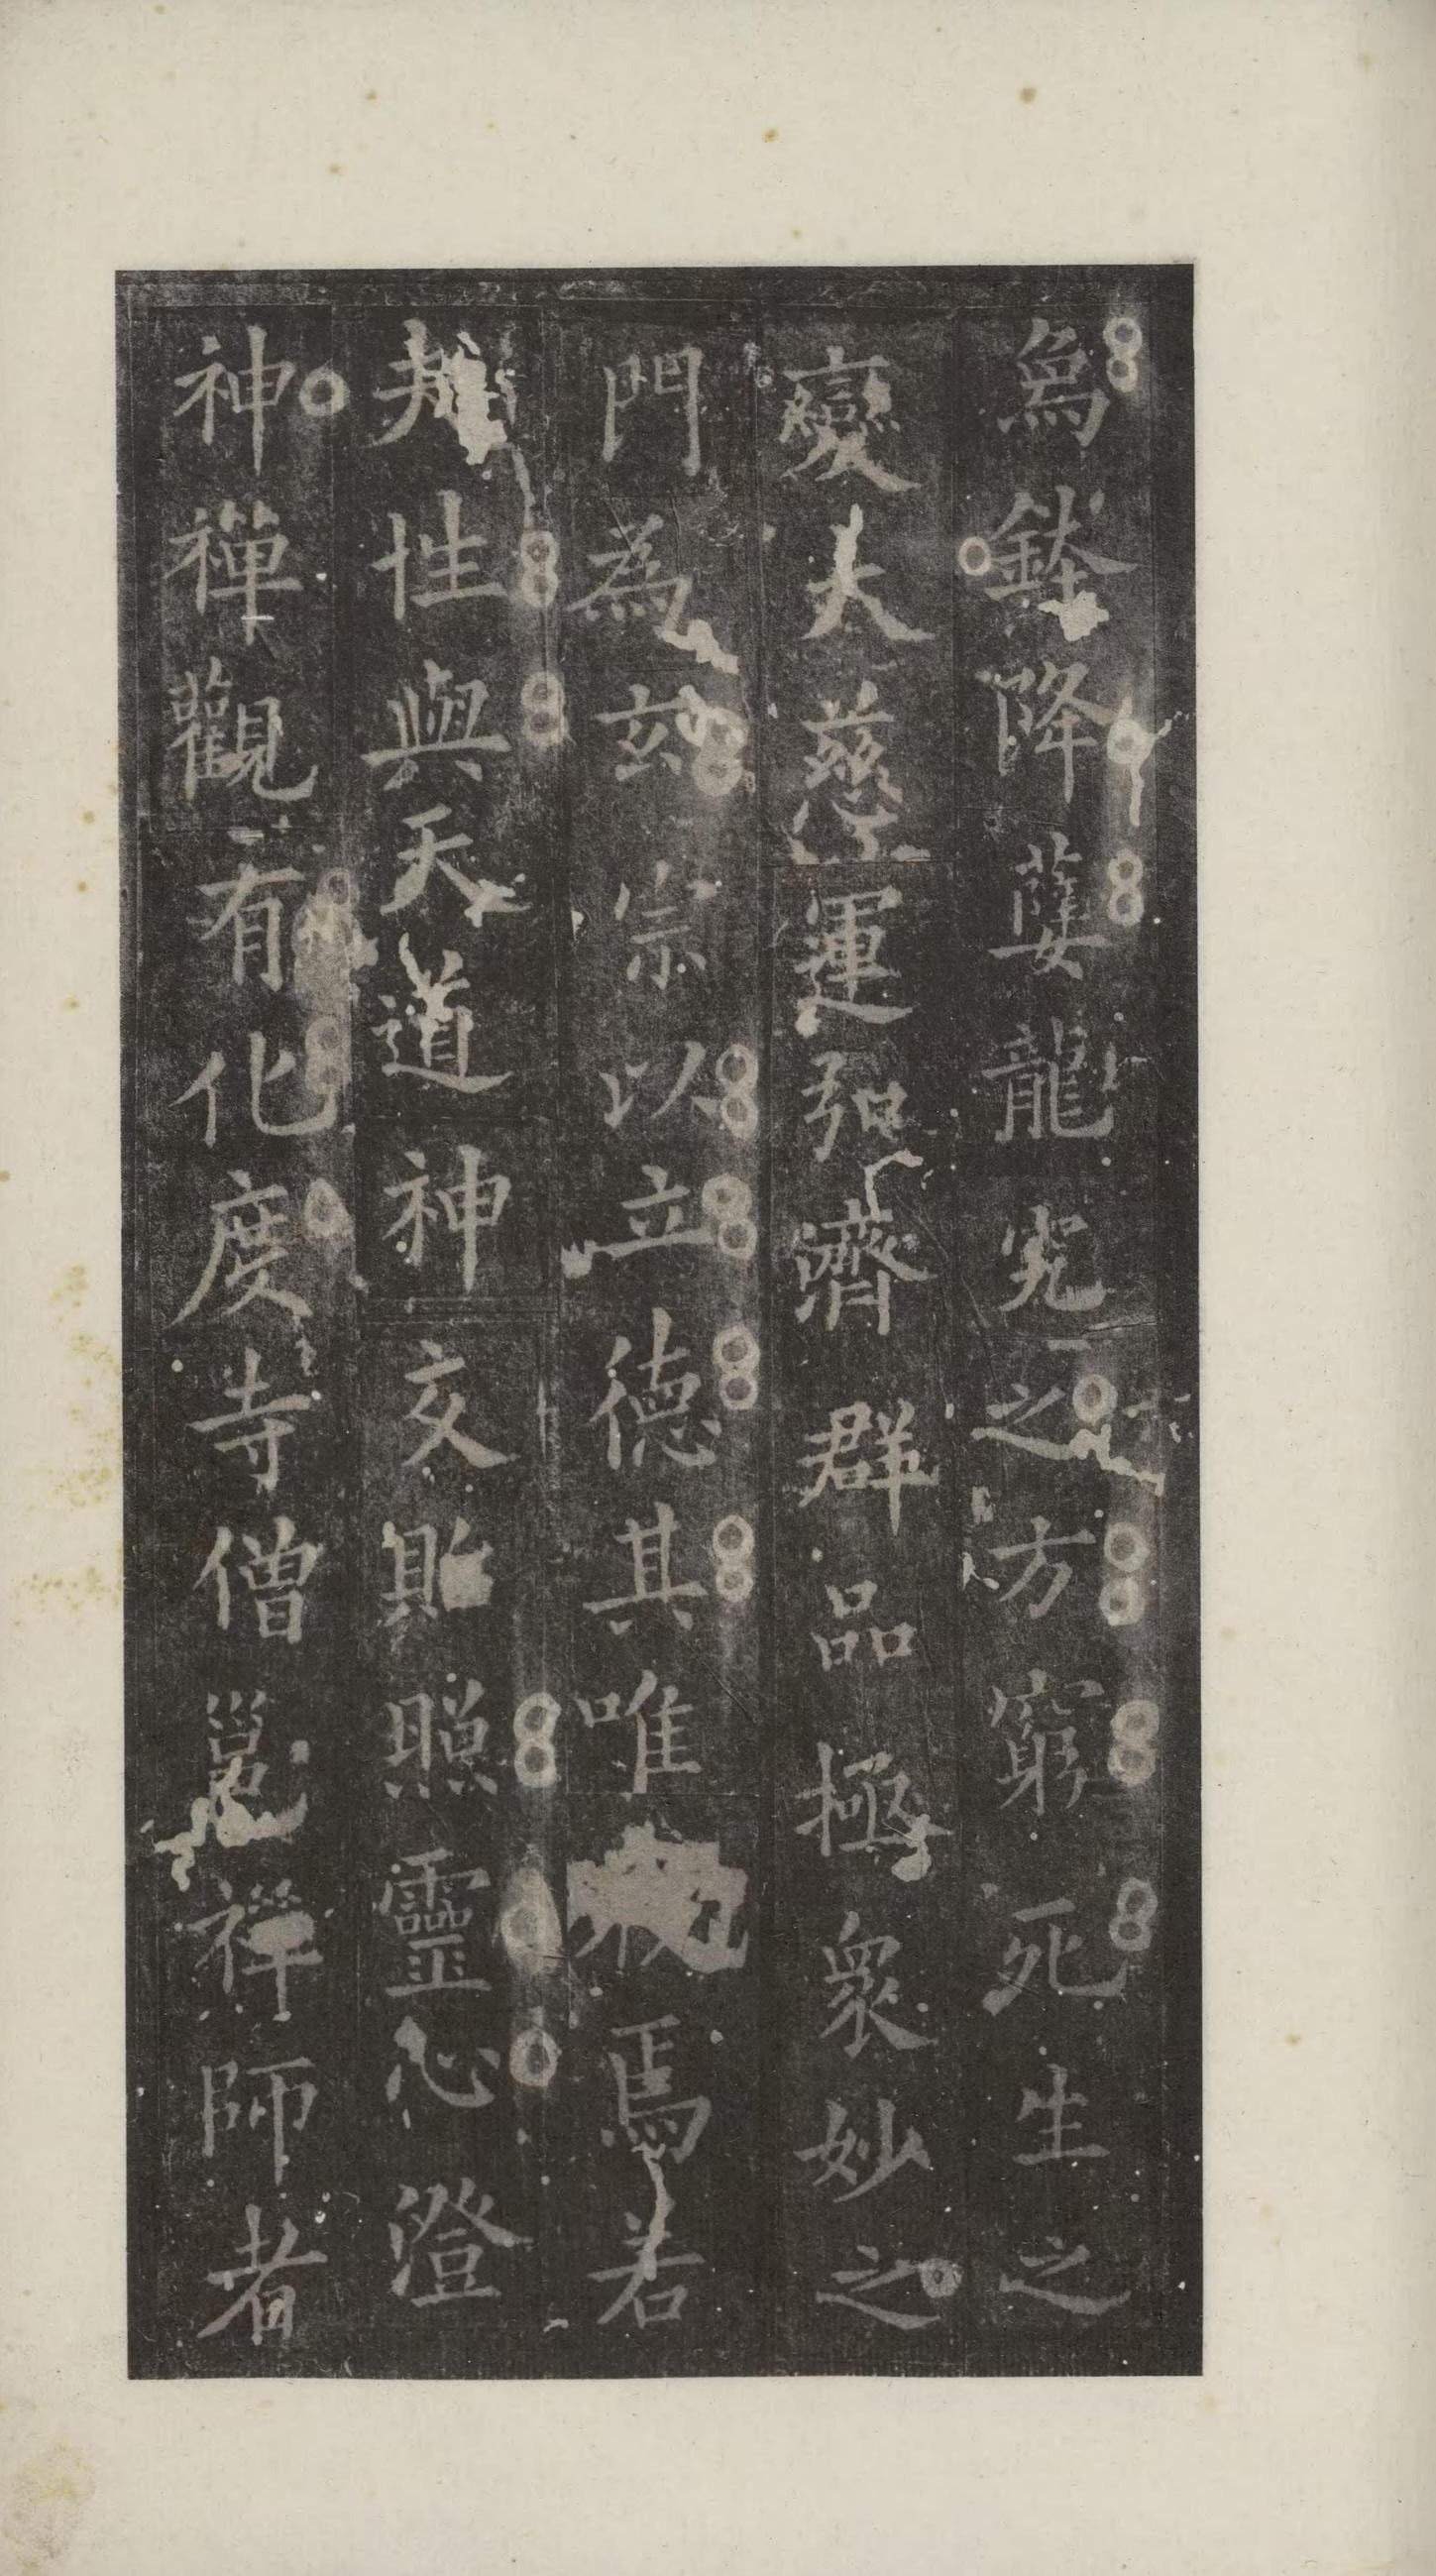 爲鉢降孽龍究之方窮死生之
變大慈運弘濟群品極衆妙之
門為玄宗以立德其唯焉若
性與天道神交貽照靈心澄
神禪觀有化度寺僧邕禪師者